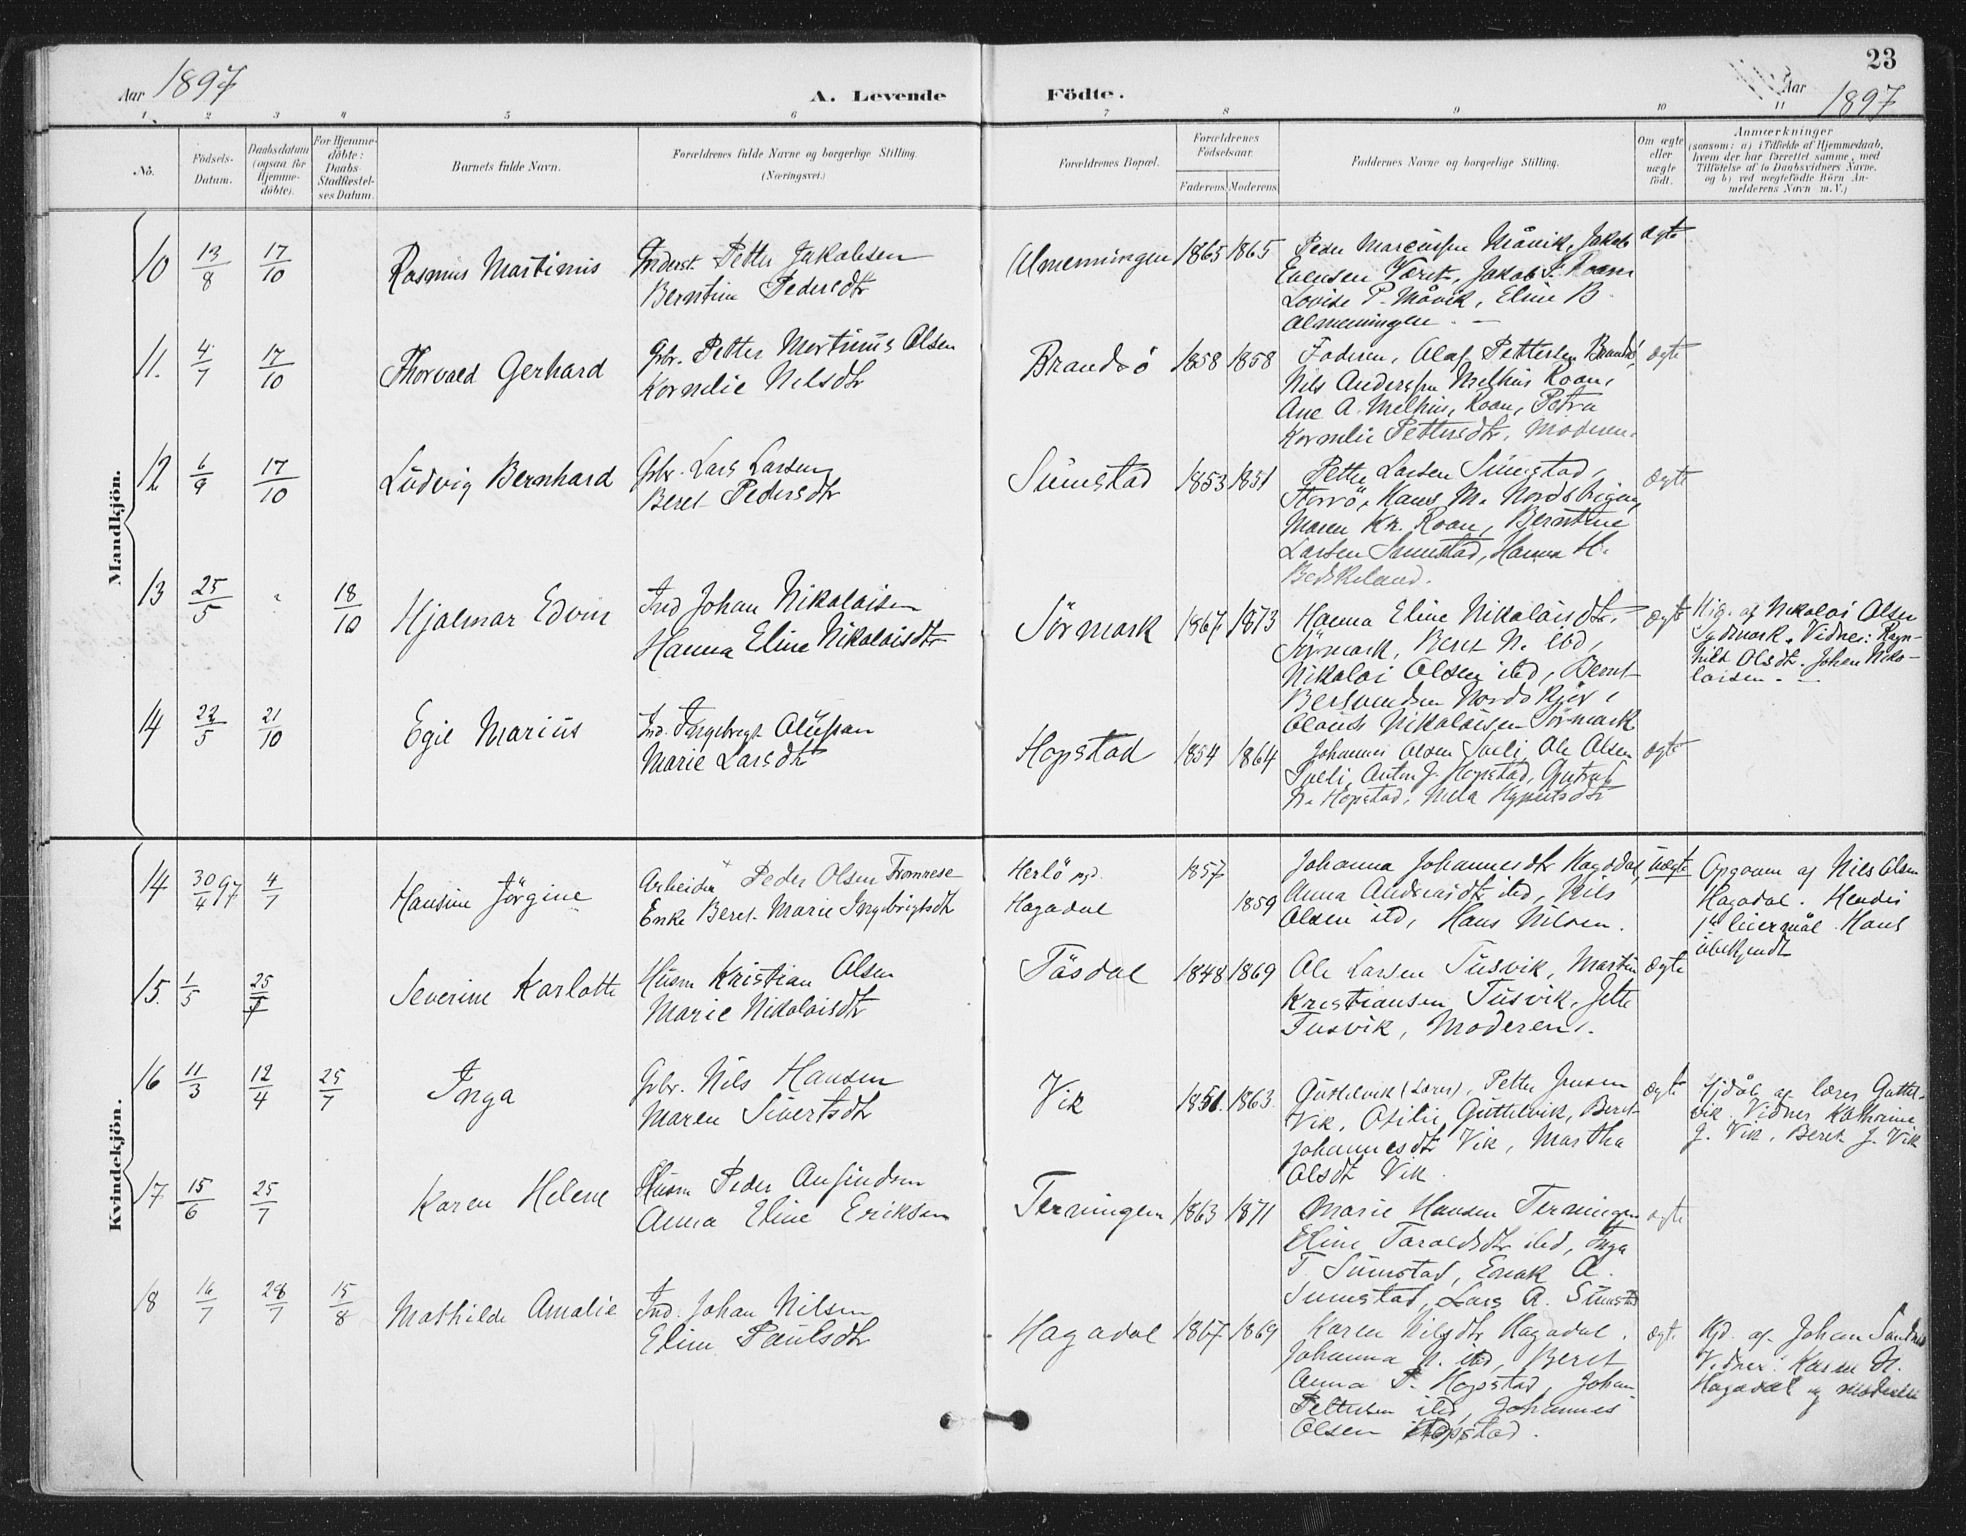 23
Aar 1897
A. Levende Födte.
Aar 1897
1. 2 3 4 5 6 7 8 9 10 11
No.
Födsels-Datum.
Daabsdatum (ogsaa for Hjemme-döbte).
For Hjemme-döbte: Daabs Stadfæstel-ses Datum.
Barnets fulde Navn.
Forældrenes fulde Navne og borgerlige Stilling. (Næringsvei.)
Forældrenes Bopæl.
Forældrenes Födselsaar.
Faderens. Moderens.
Faddernes Navne og borgerlige Stilling.
Om ægte eller uægte födt.
Anmærkninger
(saasom: a) i Tilfælde af Hjemmedaab, hvem der har forrettet samme, med Tilföielse af to Daabsvidners Navne, og b) ved uægtefödte Börn An-melderens Navn m. V.)
Mandkjön.
10 13/8 17/10 Rasmus Martinus
Inderst. Petter Jakobsen
Berntine Pedersdtr
Almenningen 1865 1865
Peder Marcussen Måvik, Jakob
Evensen Været, Jakob P. Roan
Lovise P. Måvik, Eline B.
Almenningen. —
ægte
11. 4/7 17/10 Thorvald Gerhard
Gbr. Petter Martinus Olsen
Kornelie Nilsdtr
Brandsö 1858 1858
Faderen, Olaf Pettersen Brandsö,
Nils Anderssen Melhus Roan,
Ane A. Melhus, Roan, Petra
Kornelie Pettersdtr, Moderen.
ægte
12 6/9 17/10 Ludvig Bernhard
Gbr. Lars Larsen
Beret Pedersdtr
Sumstad 1853 1851
Petter Larsen Sumstad,
Storvö, Hans M.
Maren Kr. Roan, Berntine
Larsen Sumstad, Hanna H.
ægte
13 25/5 " 18/10 Hjalmar Edvin
Ind Johan Nikolaisen
Hanna Eline Nikolaisdtr
Sörmark 1867 1873
Hanna Eline Nikolaisdtr,
Sörmark, Beret N. ibd,
Nikolai Olsen ibd, Bernt
Nordskjör,
Nikolaisen Sörmark
ægte
af Nikolai Olsen
Vidner: Ragn-
hild Olsdtr. Johan Niko-
laisen. —
14 22/5 21/10 Egil Marius
Ind. Ingebrigt Olufsan
Marie Larsdtr
Hopstad 1854 1864
Johannes Olsen Sæli, Ole Olsen
Sæli, Anton J. Hopstad, Gustav
Hopstad,
ægte
Kvindekjön.
14 30/4 97 4/7 Hansine Jörgine
Arbeider Peder Olsen Fromnese
Enke Beret Marie Ingebrigtsdtr
Herlö pgd.
Hagadal
1857
1859
Johanna Johannesdtr Hagadal,
Anna Andreasdtr ibd, Nils
Olsen ibd, Hans Nilsen.
uægte
Opgaven af Nils Olsen
Hagadal. Hendes
1ste leiermål. Hans
ubekjendt
15. 1/5 25/7 Severine Karlotte
Husm Kristian Olsen
Marie Nikolaisdtr
Tåsdal 1848 1869
Ole Larsen Tusvik, Martin
Kristiansen Tusvik, Jette
Tusvik, Moderen.
ægte
16 11/3 12/4 25/7 Inga
Gbr. Nils Hansen
Maren Sivertsdtr
Vik 1851. 1863.
Guttelvik (Lærer), Petter Jensen
Vik, Otilie Guttelvik, Beret
Johannesdtr Vik, Martha
Olsdtr Vik.
ægte
Hjdöbt af lærer Guttel-
vik. Vidner Kathrine
J. Vik, Beret J. Vik
17 15/6 25/7 Karen Helene
Husm Peder Anfindsen
Anna Eline Eriksen
Terningen 1863 1871
Marie Hansen Terningen
Eline Taraldsdtr ibd, Inga
T. Sumstad, Enok A.
Sumstad, Lars A. Sumstad
ægte
18 16/7 28/7 15/8 Mathilde Amalie
Ind. Johan Nilsen
Eline Paulsdtr
Hagadal 1867 1869
Karen Nilsdtr Hagadal.
Johanna N. ibd, Beret
Anna P. Hopstad, Johan
Pettersen ibd, Johannes
Olsen Hopstad.
ægte
Hjd. af Johan
Vidner: Karen N.
Hagadal og moderen